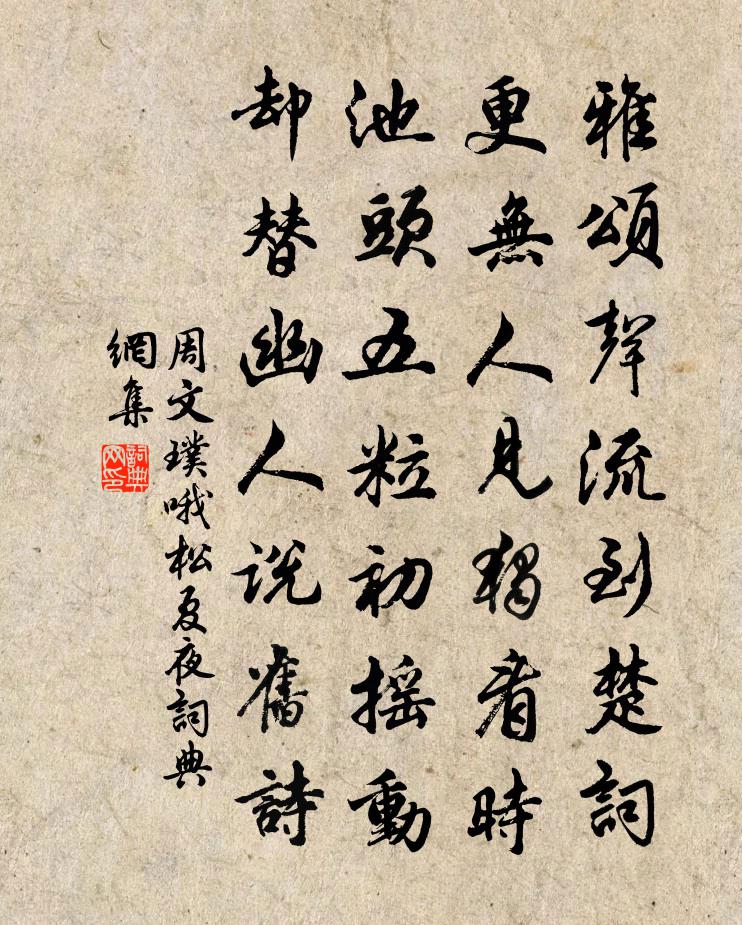 雅頌聲流到楚詞
更無人見獨看時
池頭五粒初搖動
却替幽人説舊詩
周文璞哦松夏夜詞典
網集
詞典
网印